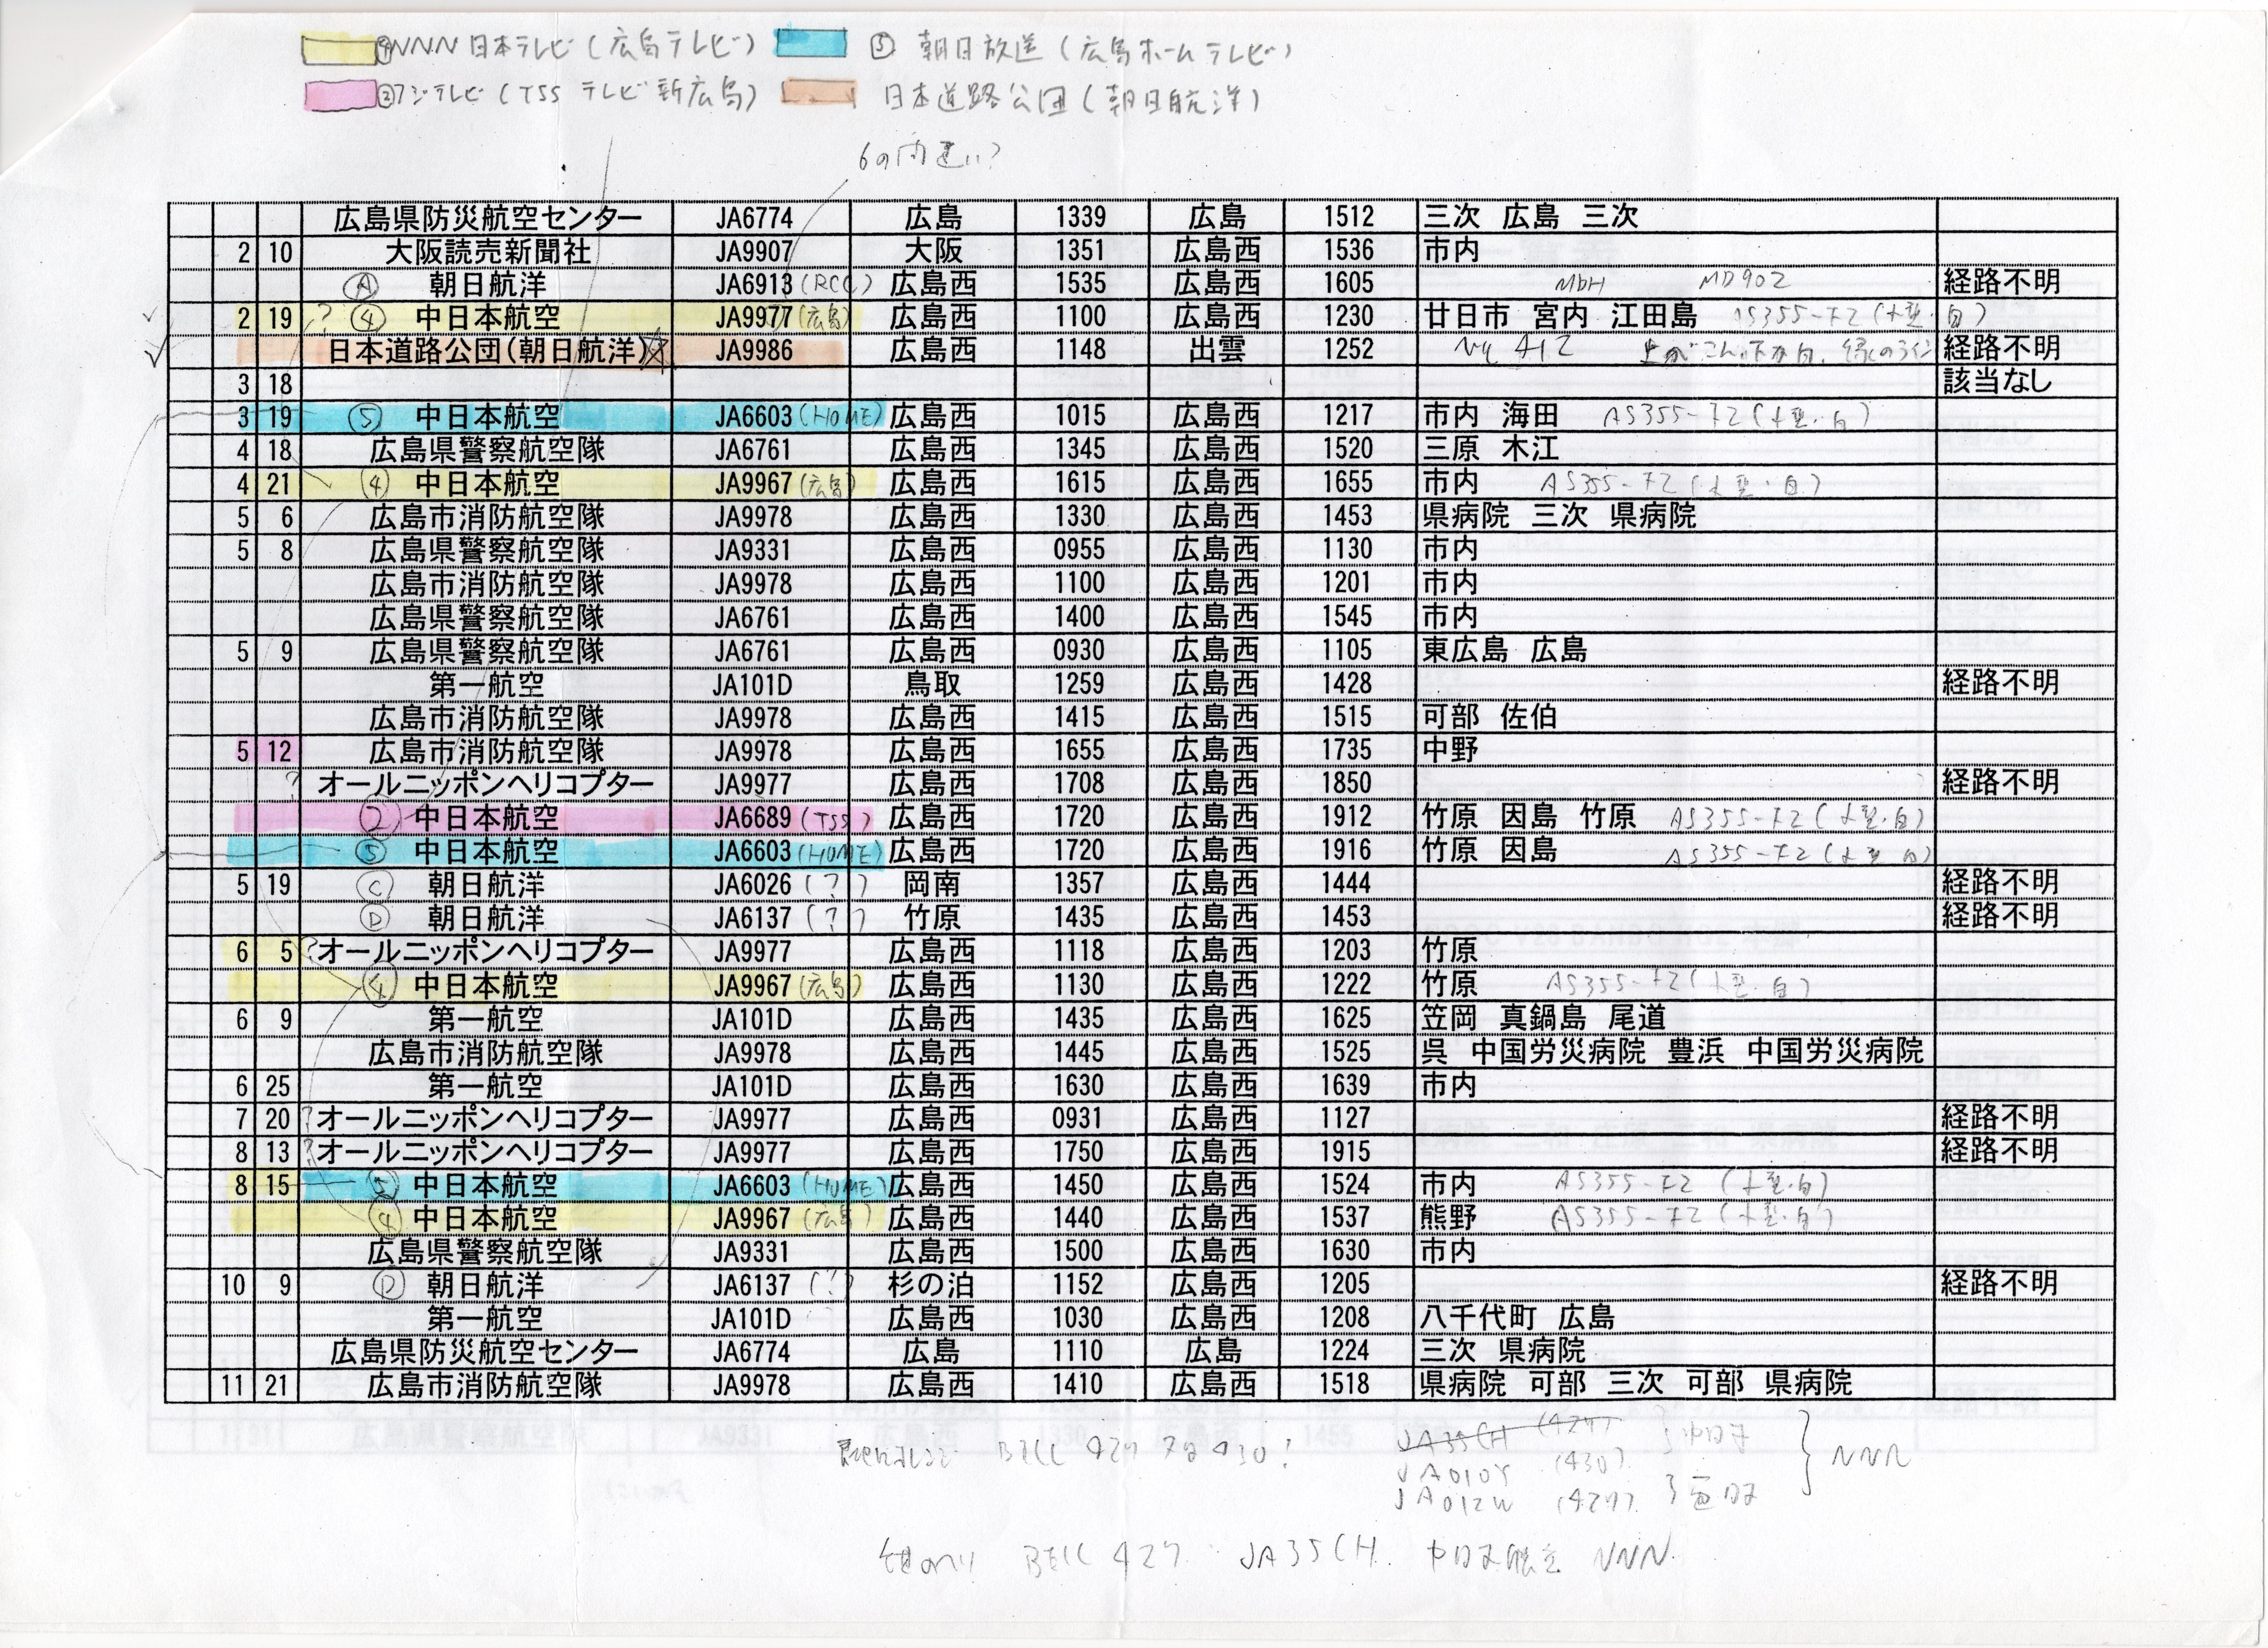 ④NNN日本テレビ(広島テレビ) ⑤ 朝日放送(広島ホームテレビ)
②フジテレビ(TSS テレビ新広島) 日本道路公団(朝日航洋)
6の間違い?
広島県防災航空センター JA6774 広島 1339 広島 1512 三次 広島 三次
2 10 大阪読売新聞社 JA9907 大阪 1351 広島西 1536 市内
Ⓐ 朝日航洋 JA6913 (RCC) 広島西 1535 広島西 1605 MD902 経路不明
2 19 ? ④ 中日本航空 JA9977 (広島) 広島西 1100 広島西 1230 廿日市 宮内 江田島 AS355-F2 (小型・白)
日本道路公団(朝日航洋) JA9986 広島西 1148 出雲 1252 412 経路不明
3 18 該当なし
3 19 ⑤ 中日本航空 JA6603 (HOME) 広島西 1015 広島西 1217 市内 海田 AS355-F2 (小型・白)
4 18 広島県警察航空隊 JA6761 広島西 1345 広島西 1520 三原 木江
4 21 ④ 中日本航空 JA9967 (広島) 広島西 1615 広島西 1655 市内 AS355-F2 (小型・白)
5 6 広島市消防航空隊 JA9978 広島西 1330 広島西 1453 県病院 三次 県病院
5 8 広島県警察航空隊 JA9331 広島西 0955 広島西 1130 市内
広島市消防航空隊 JA9978 広島西 1100 広島西 1201 市内
広島県警察航空隊 JA6761 広島西 1400 広島西 1545 市内
5 9 広島県警察航空隊 JA6761 広島西 0930 広島西 1105 東広島 広島
第一航空 JA101D 鳥取 1259 広島西 1428 経路不明
広島市消防航空隊 JA9978 広島西 1415 広島西 1515 可部 佐伯
5 12 広島市消防航空隊 JA9978 広島西 1655 広島西 1735 中野
? オールニッポンヘリコプター JA9977 広島西 1708 広島西 1850 経路不明
② 中日本航空 JA6689 (TSS) 広島西 1720 広島西 1912 竹原 因島 竹原 AS355-F2 (小型・白)
⑤ 中日本航空 JA6603 (HOME) 広島西 1720 広島西 1916 竹原 因島 AS355-F2 (小型 白)
5 19 Ⓒ 朝日航洋 JA6026 (?) 岡南 1357 広島西 1444 経路不明
Ⓓ 朝日航洋 JA6137 (?) 竹原 1435 広島西 1453 経路不明
6 5 ? オールニッポンヘリコプター JA9977 広島西 1118 広島西 1203 竹原
④ 中日本航空 JA9967 (広島) 広島西 1130 広島西 1222 竹原 AS355-F2 (小型・白)
6 9 第一航空 JA101D 広島西 1435 広島西 1625 笠岡 真鍋島 尾道
広島市消防航空隊 JA9978 広島西 1445 広島西 1525 呉 中国労災病院 豊浜 中国労災病院
6 25 第一航空 JA101D 広島西 1630 広島西 1639 市内
7 20 ? オールニッポンヘリコプター JA9977 広島西 0931 広島西 1127 経路不明
8 13 ? オールニッポンヘリコプター JA9977 広島西 1750 広島西 1915 経路不明
8 15 ⑤ 中日本航空 JA6603 (HOME) 広島西 1450 広島西 1524 市内 AS355-F2 (小型・白)
④ 中日本航空 JA9967 (広島) 広島西 1440 広島西 1537 熊野 AS355-F2 (小型・白)
広島県警察航空隊 JA9331 広島西 1500 広島西 1630 市内
10 9 Ⓓ 朝日航洋 JA6137 (?) 杉の泊 1152 広島西 1205 経路不明
第一航空 JA101D 広島西 1030 広島西 1208 八千代町 広島
広島県防災航空センター JA6774 広島 1110 広島 1224 三次 県病院
11 21 広島市消防航空隊 JA9978 広島西 1410 広島西 1518 県病院 可部 三次 可部 県病院
BELL 427 430?
JA35CH (427)
JA010Y (430) NNN
JA012W (427)
BELL 427 JA35CH 中日本航空 NNN